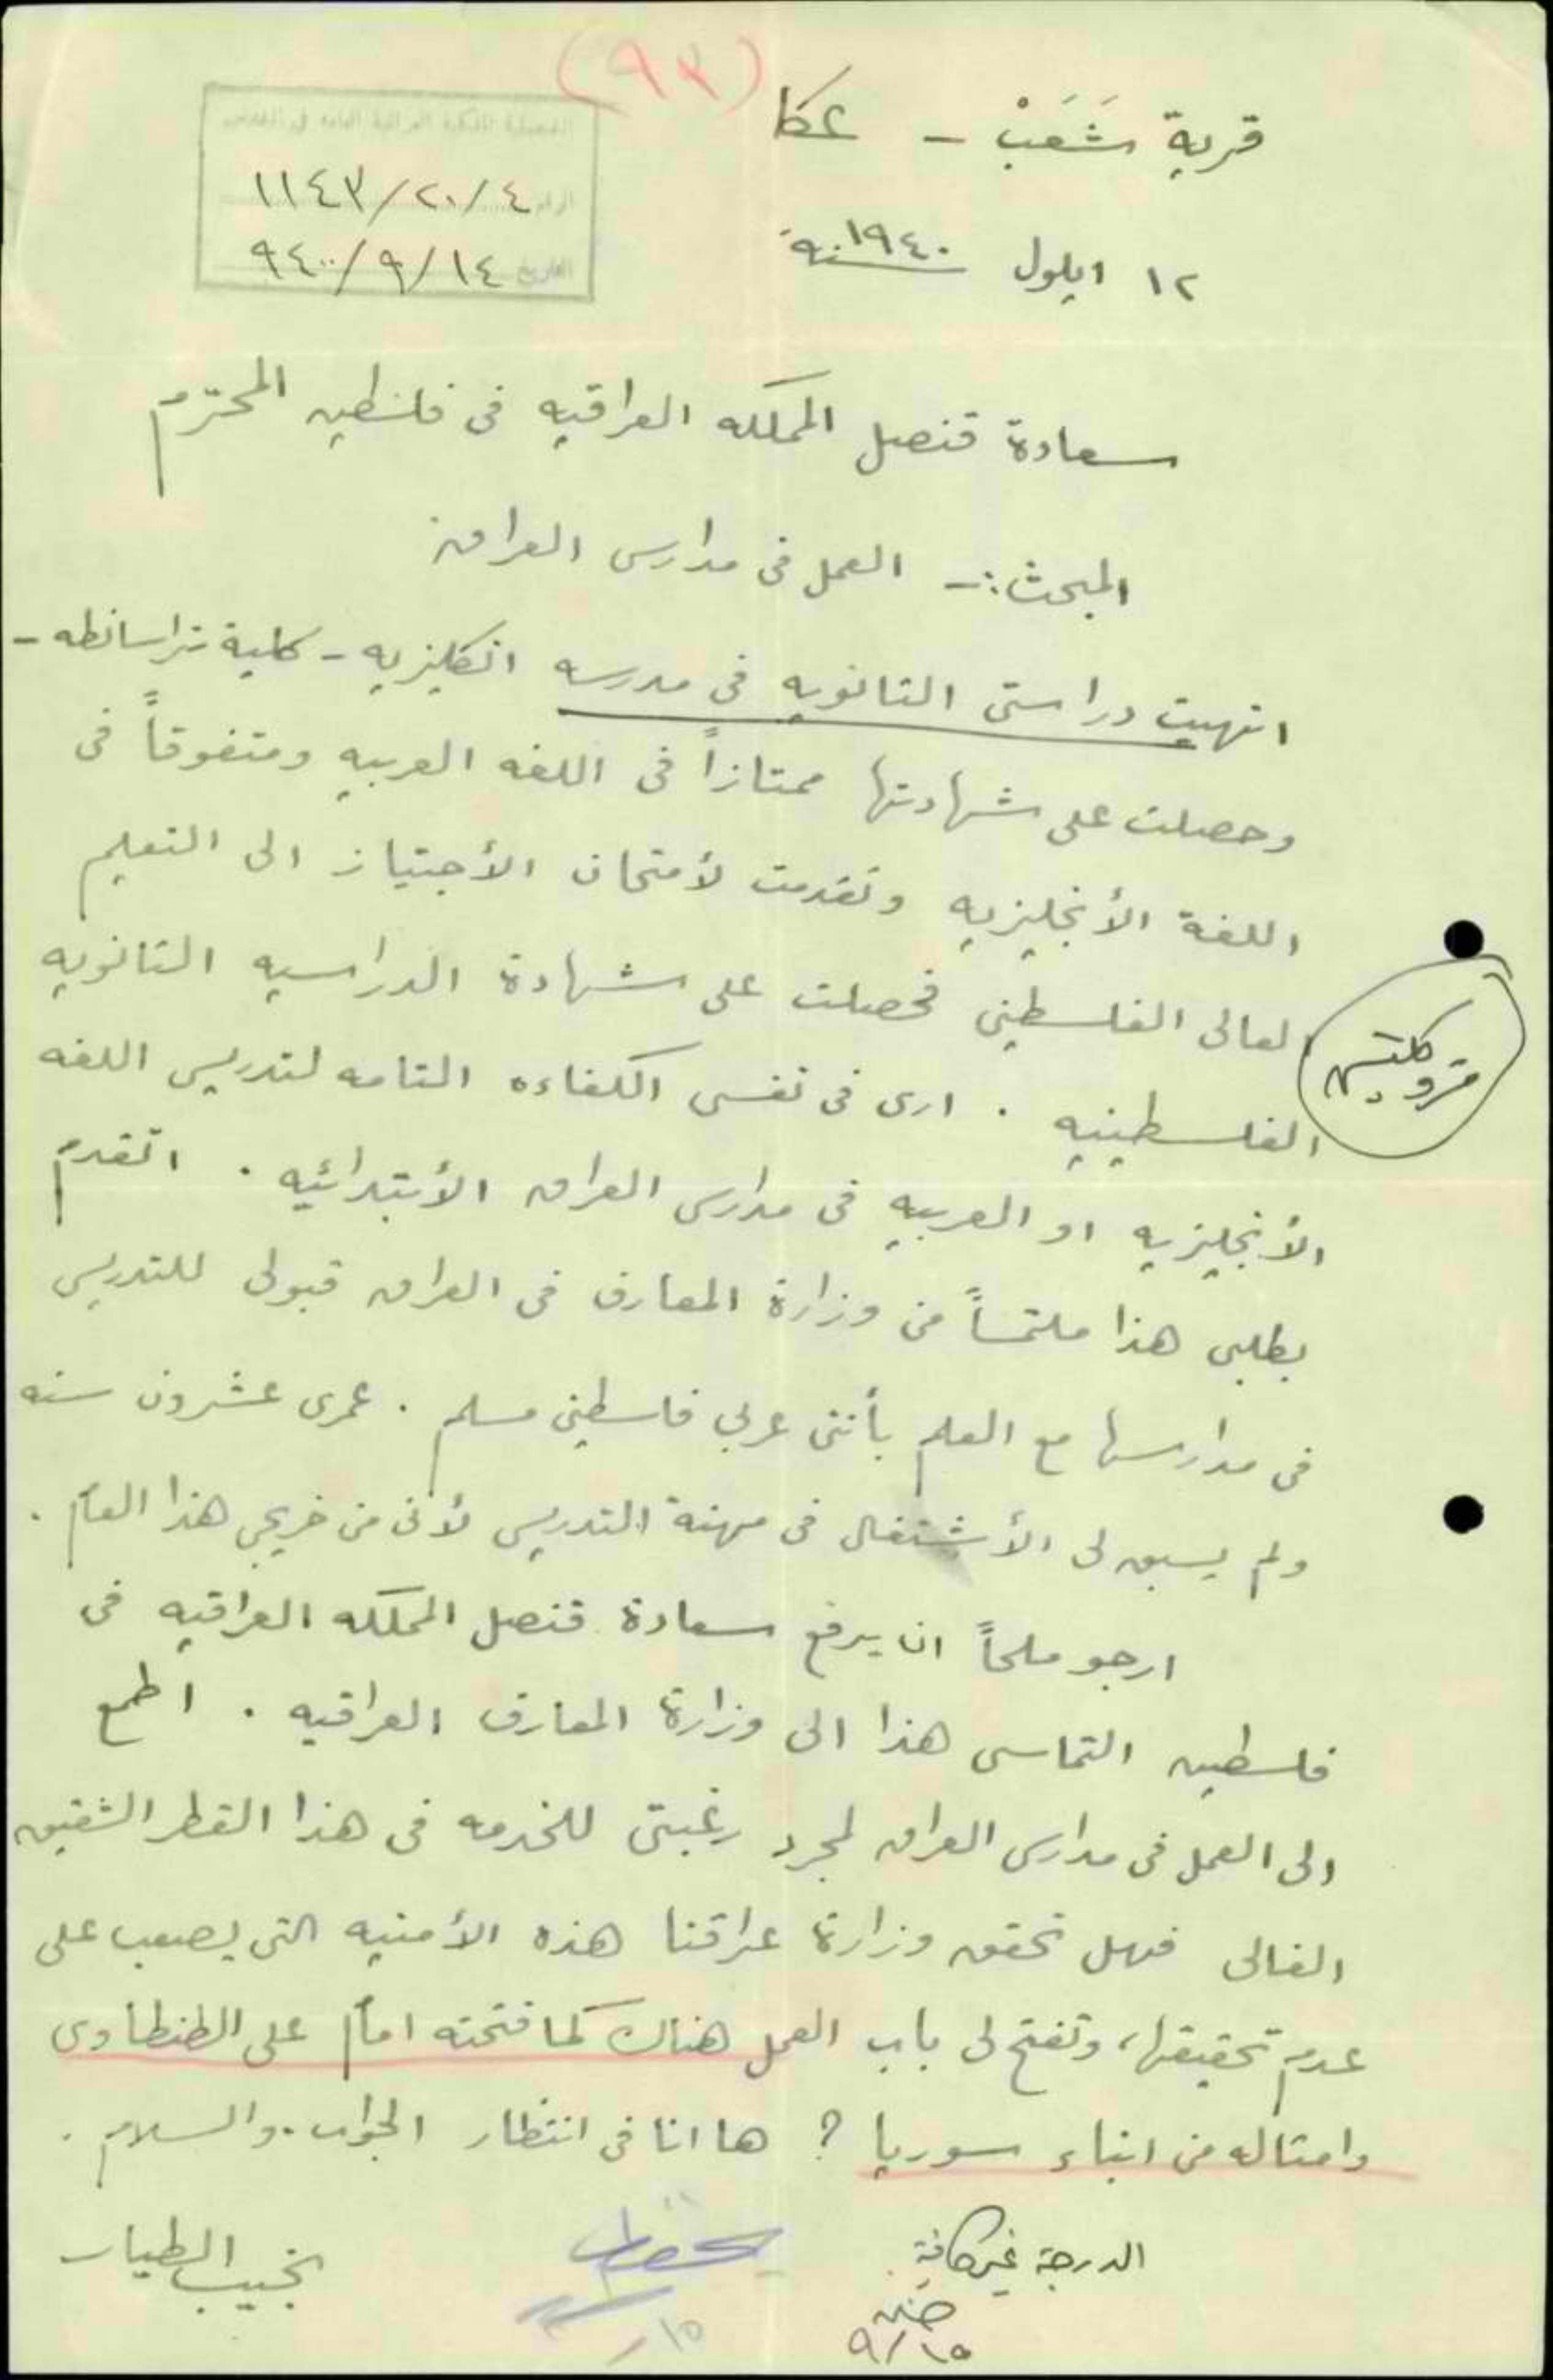 (٩٣)
قرية شَعَبْ - عكا
القنصلية الملكية العراقية العامة في القدس
الرقم ١١٤٣/٢٠/٤
التاريخ ٩٤٠/٩/١٤
١٢ ايلول سنة ١٩٤٠
سعادة قنصل المملكه العراقيه في فلسطين المحترم
المبحث :- العمل في مدارس العراق
انهيت دراستي الثانويه في مدرسه انكليزيه - كلية تراسانطه -
وحصلت على شهادتها ممتازاً في اللغه العربيه ومتفوقاً في
اللغة الأنجليزيه وتقدمت لأمتحان الأجتياز الى التعليم
العالي الفلسطيني فحصلت على شهادة الدراسيه الثانويه
الفلسطينيه . ارى في نفسي الكفاءه التامه لتدريس اللغه
الأنجليزيه او العربيه في مدارس العراق الأبتدائيه . اتقدم
بطلبي هذا ملتمساً من وزارة المعارف في العراق قبولي للتدريس
في مدارسها مع العلم بأنني عربي فلسطيني مسلم . عمري عشرون سنه
ولم يسبق لي الأشتغال في مهنة التدريس لأني من خريجي هذا العام .
ارجو ملحاً ان يرفع سعادة قنصل المملكه العراقيه في
فلسطين التماسي هذا الى وزارة المعارف العراقيه . اطمع
الى العمل في مدارس العراق لمجرد رغبتي للخدمه في هذا القطر الشقيق
الغالي فهل تحقق وزارة عراقنا هذه الأمنيه التي يصعب علي
عدم تحقيقها، وتفتح لي باب العمل هناك كما فتحته امام علي الطنطاوي
وامثاله من ابناء سوريا ؟ ها انا في انتظار الجواب . والسلام .
نجيب الطيار
الدرجة غير كافية
٩/١٥
يحفظ
١٥